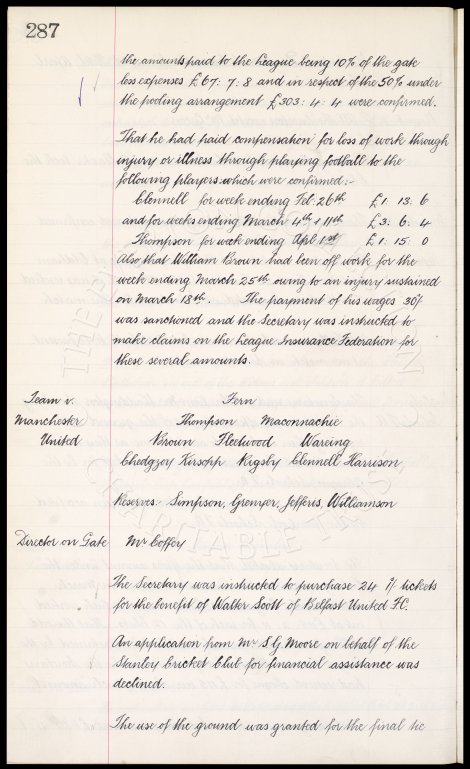 287
the amounts paid to the League being 10% of the gate
less expenses £67: 7: 8 and in respect of the 50% under
the pooling arrangement £303: 4: 4 were confirmed.
That he had paid compensation for loss of work through
injury or illness through playing football to the
following players which were confirmed:-
Clennell for week ending Feb: 26th £1: 13: 6
and for weeks ending March 4th & 11th £3: 6: 4
Thompson for week ending Apl. 1st £1: 15: 0
Also that William Brown had been off work for the
week ending March 25th owing to an injury sustained
on March 18th. The payment of his wages 30/
was sanctioned and the Secretary was instructed to
make claims on the League Insurance Federation for
these several amounts.
Team v. Fern
Manchester Thompson Maconnachie
United Brown Fleetwood Wareing
Chedgzoy Kirsopp Rigsby Clennell Harrison
Reserves:- Simpson, Grenyer, Jefferis, Williamson
Director on Gate Mr Coffey
The Secretary was instructed to purchase 24 1/ tickets
for the benefit of Walter Scott of Belfast United F.C.
An application from Mr S.G. Moore on behalf of the
Stanley Cricket Club for financial assistance was
declined.
The use of the ground was granted for the final tie